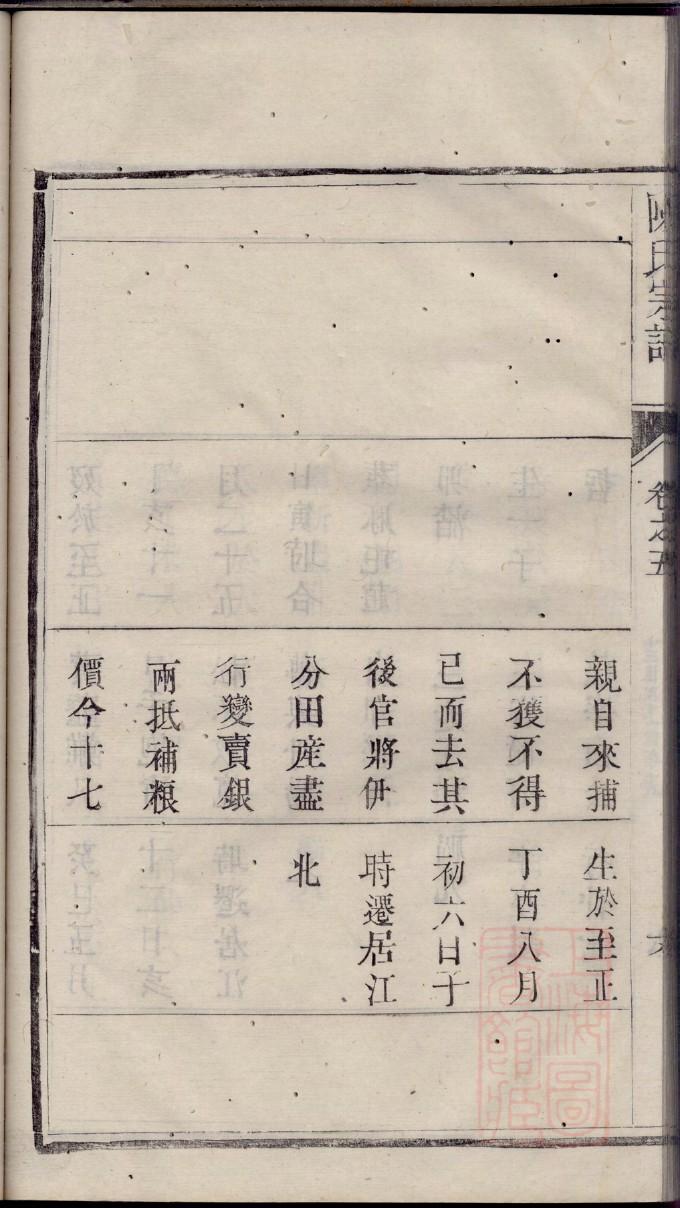 陳氏宗譜
卷之五
六
親自來捕
不獲不得
已而去其
後官將伊
分田産盡
行變賣銀
兩抵補粮
價今十七
生於至正
丁酉八月
初六日子
時遷居江
北
上海圖
書館藏